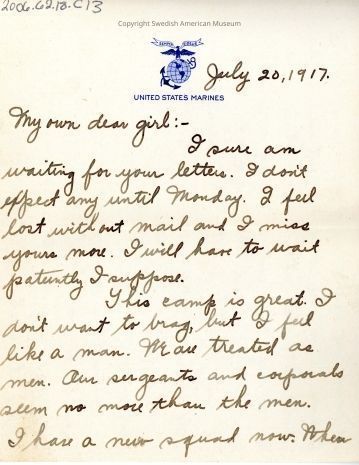 2006.62.18.C13
Copyright Swedish American Museum
SEMPER FIDELIS
July 20, 1917.
UNITED STATES MARINES
My own dear girl:-
I sure am
waiting for your letters. I don't
expect any until Monday. I feel
lost without mail and I miss
yours more. I will have to wait
patiently I suppose.
This camp is great. I
don't want to brag, but I feel
like a man. We are treated as
men. Our sergeants and corporals
seem no more than the men.
I have a new squad now. When